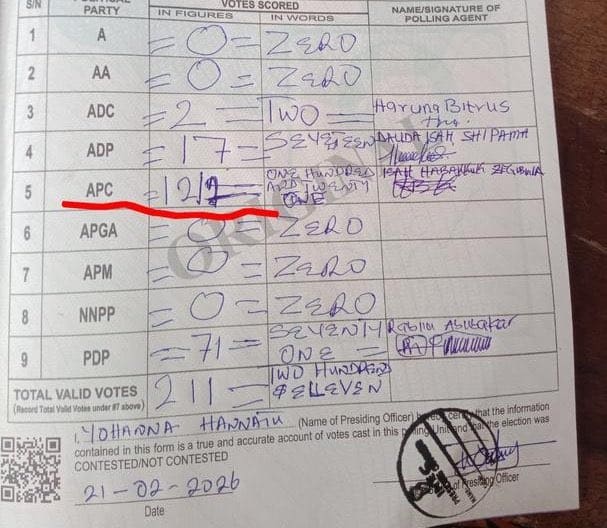 S/N PARTY VOTES SCORED NAME/SIGNATURE OF POLLING AGENT
IN FIGURES IN WORDS
1 A =0= ZERO
2 AA =0= ZERO
3 ADC =2= TWO= Haruna Bitrus
4 ADP =17= SEVETEEN DAUDA ISAH SHIPAMA
5 APC =121= ONE HUNDRED AND TWENTY ONE ISAH HABAKKUK
6 APGA =0= ZERO
7 APM =0= ZERO
8 NNPP =0= ZERO
9 PDP =71= SEVENTY ONE= Rabiu Abubakar
TOTAL VALID VOTES 211= TWO HUNDRED ELLEVEN
(Record Total Valid Votes under #7 above)
ORIGINAL
I, YOHANNA HANNATU (Name of Presiding Officer) hereby certify that the information
contained in this form is a true and accurate account of votes cast in this Polling Unit and that the election was
CONTESTED/NOT CONTESTED
21-02-2026
Date
of Presiding Officer